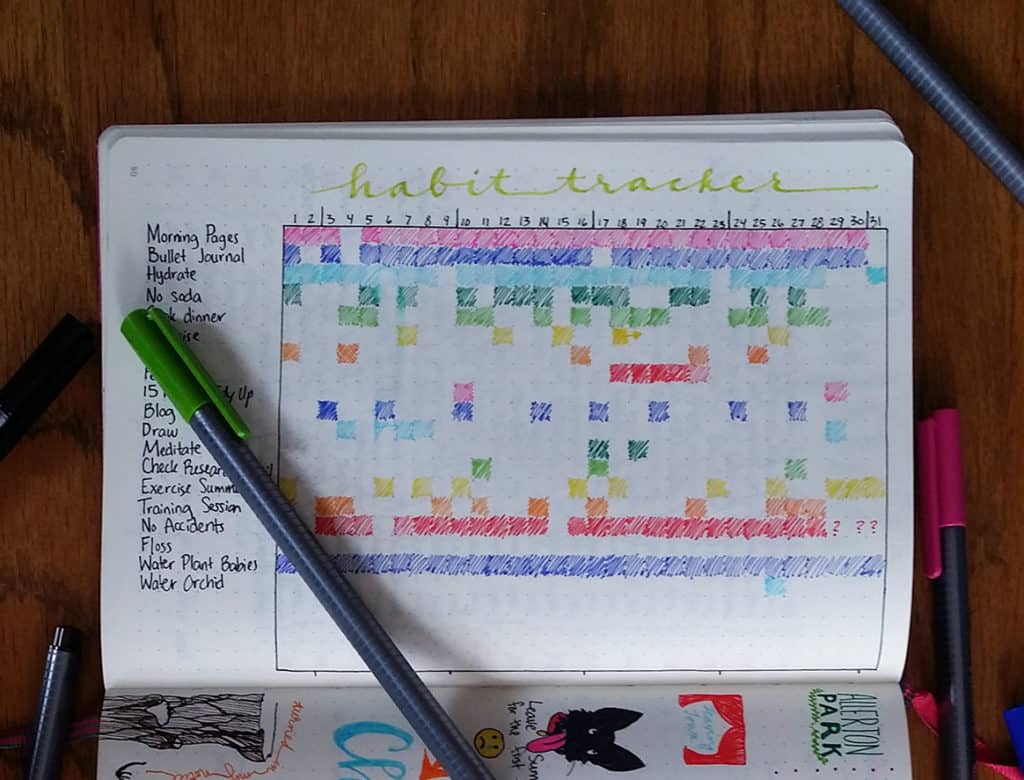 habit tracker
1 2 3 4 5 6 7 8 9 10 11 12 13 14 15 16 17 18 19 20 21 22 23 24 25 26 27 28 29 30 31
Morning Pages
Bullet Journal
Hydrate
No soda
dinner
15 Up
Blog
Draw
Meditate
Check
Exercise
Training Session
No Accidents ? ? ?
Floss
Water Plant Babies
Water Orchid
Leave
for the first
ALLERTON
PARK